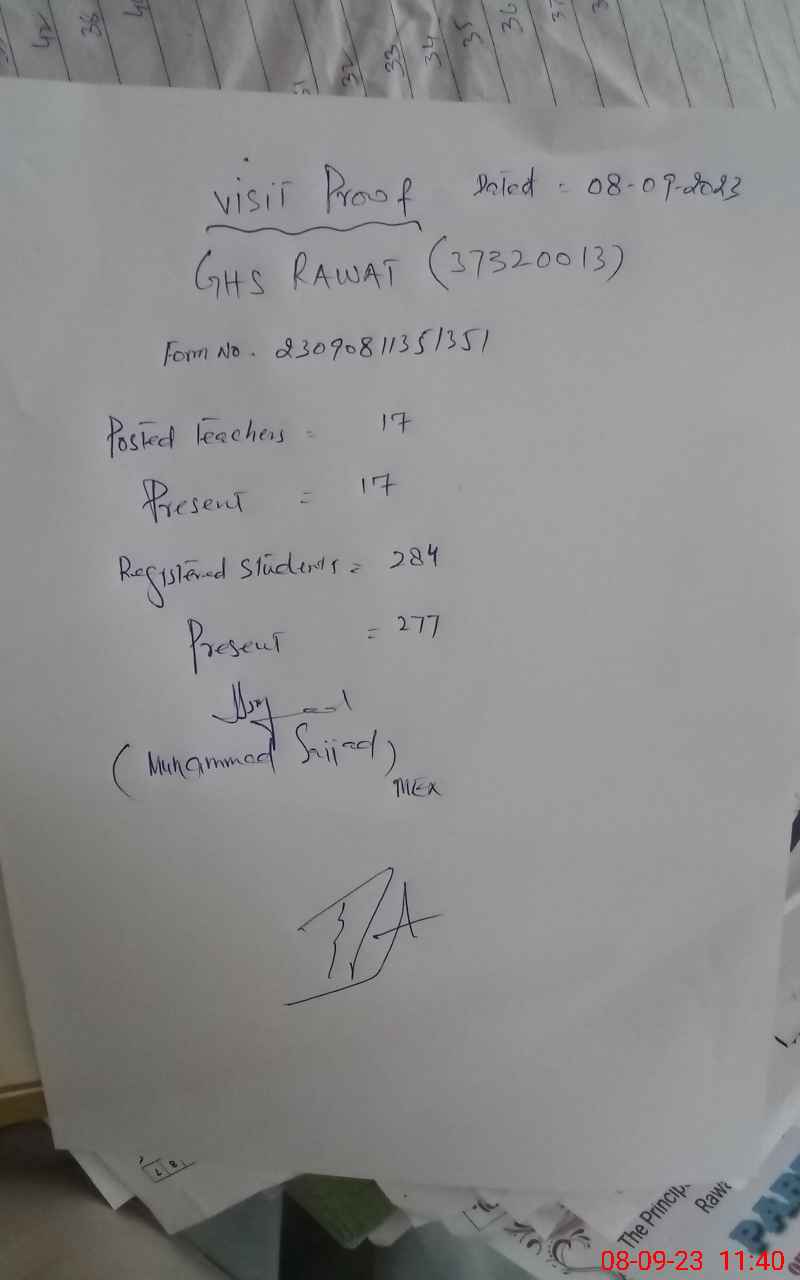 42 38 4
31 32 33 34 35 36 37 3
Visit Proof Dated = 08-09-2023
GHS RAWAT (37320013)
Form No. 23090811351351
Posted Teachers = 17
Present = 17
Registered Students = 284
Present = 277
(Muhammad Sajjad)
MEA
The Princip
Rawa
PAB
08-09-23 11:40